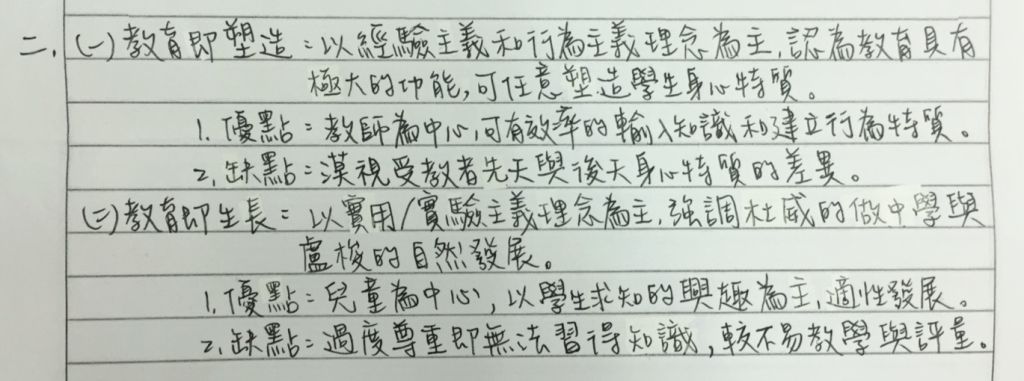 二、(一)教育即塑造：以經驗主義和行為主義理念為主，認為教育具有
極大的功能，可任意塑造學生身心特質。
1. 優點：教師為中心，可有效率的輸入知識和建立行為特質。
2. 缺點：漠視受教者先天與後天身心特質的差異。
(二)教育即生長：以實用/實驗主義理念為主，強調杜威的做中學與
盧梭的自然發展。
1. 優點：兒童為中心，以學生求知的興趣為主，適性發展。
2. 缺點：過度尊重即無法習得知識，較不易教學與評量。